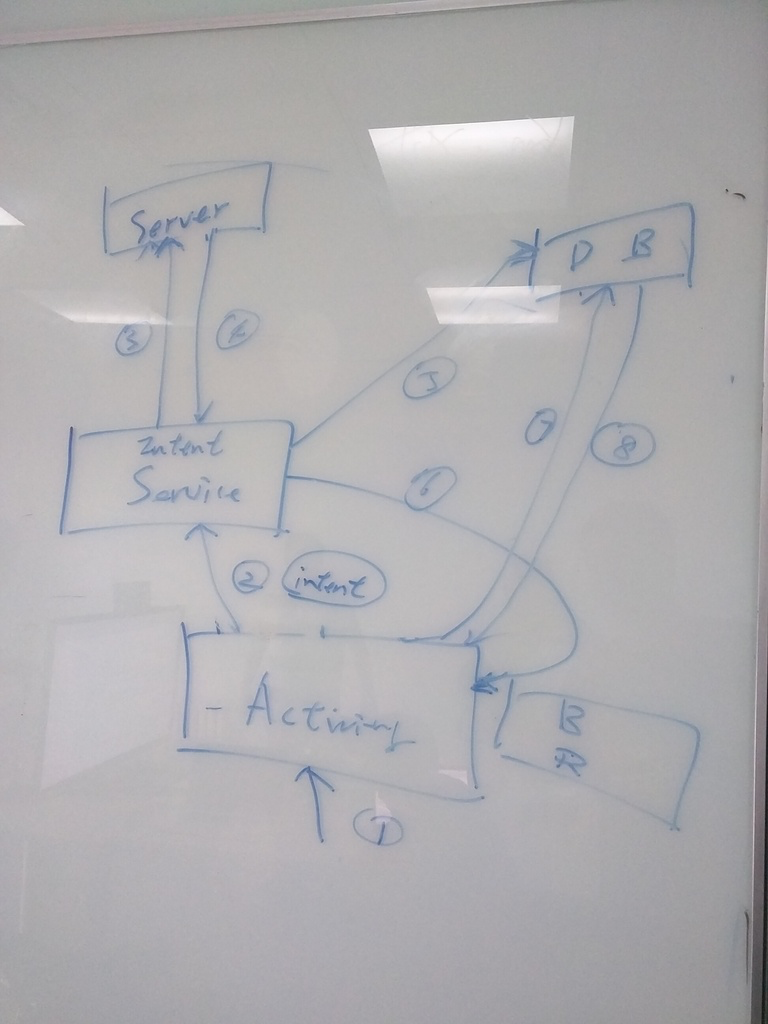 Server
D B
3
4
5
7
8
Intent
Service
6
2
intent
- Activity
B
R
1